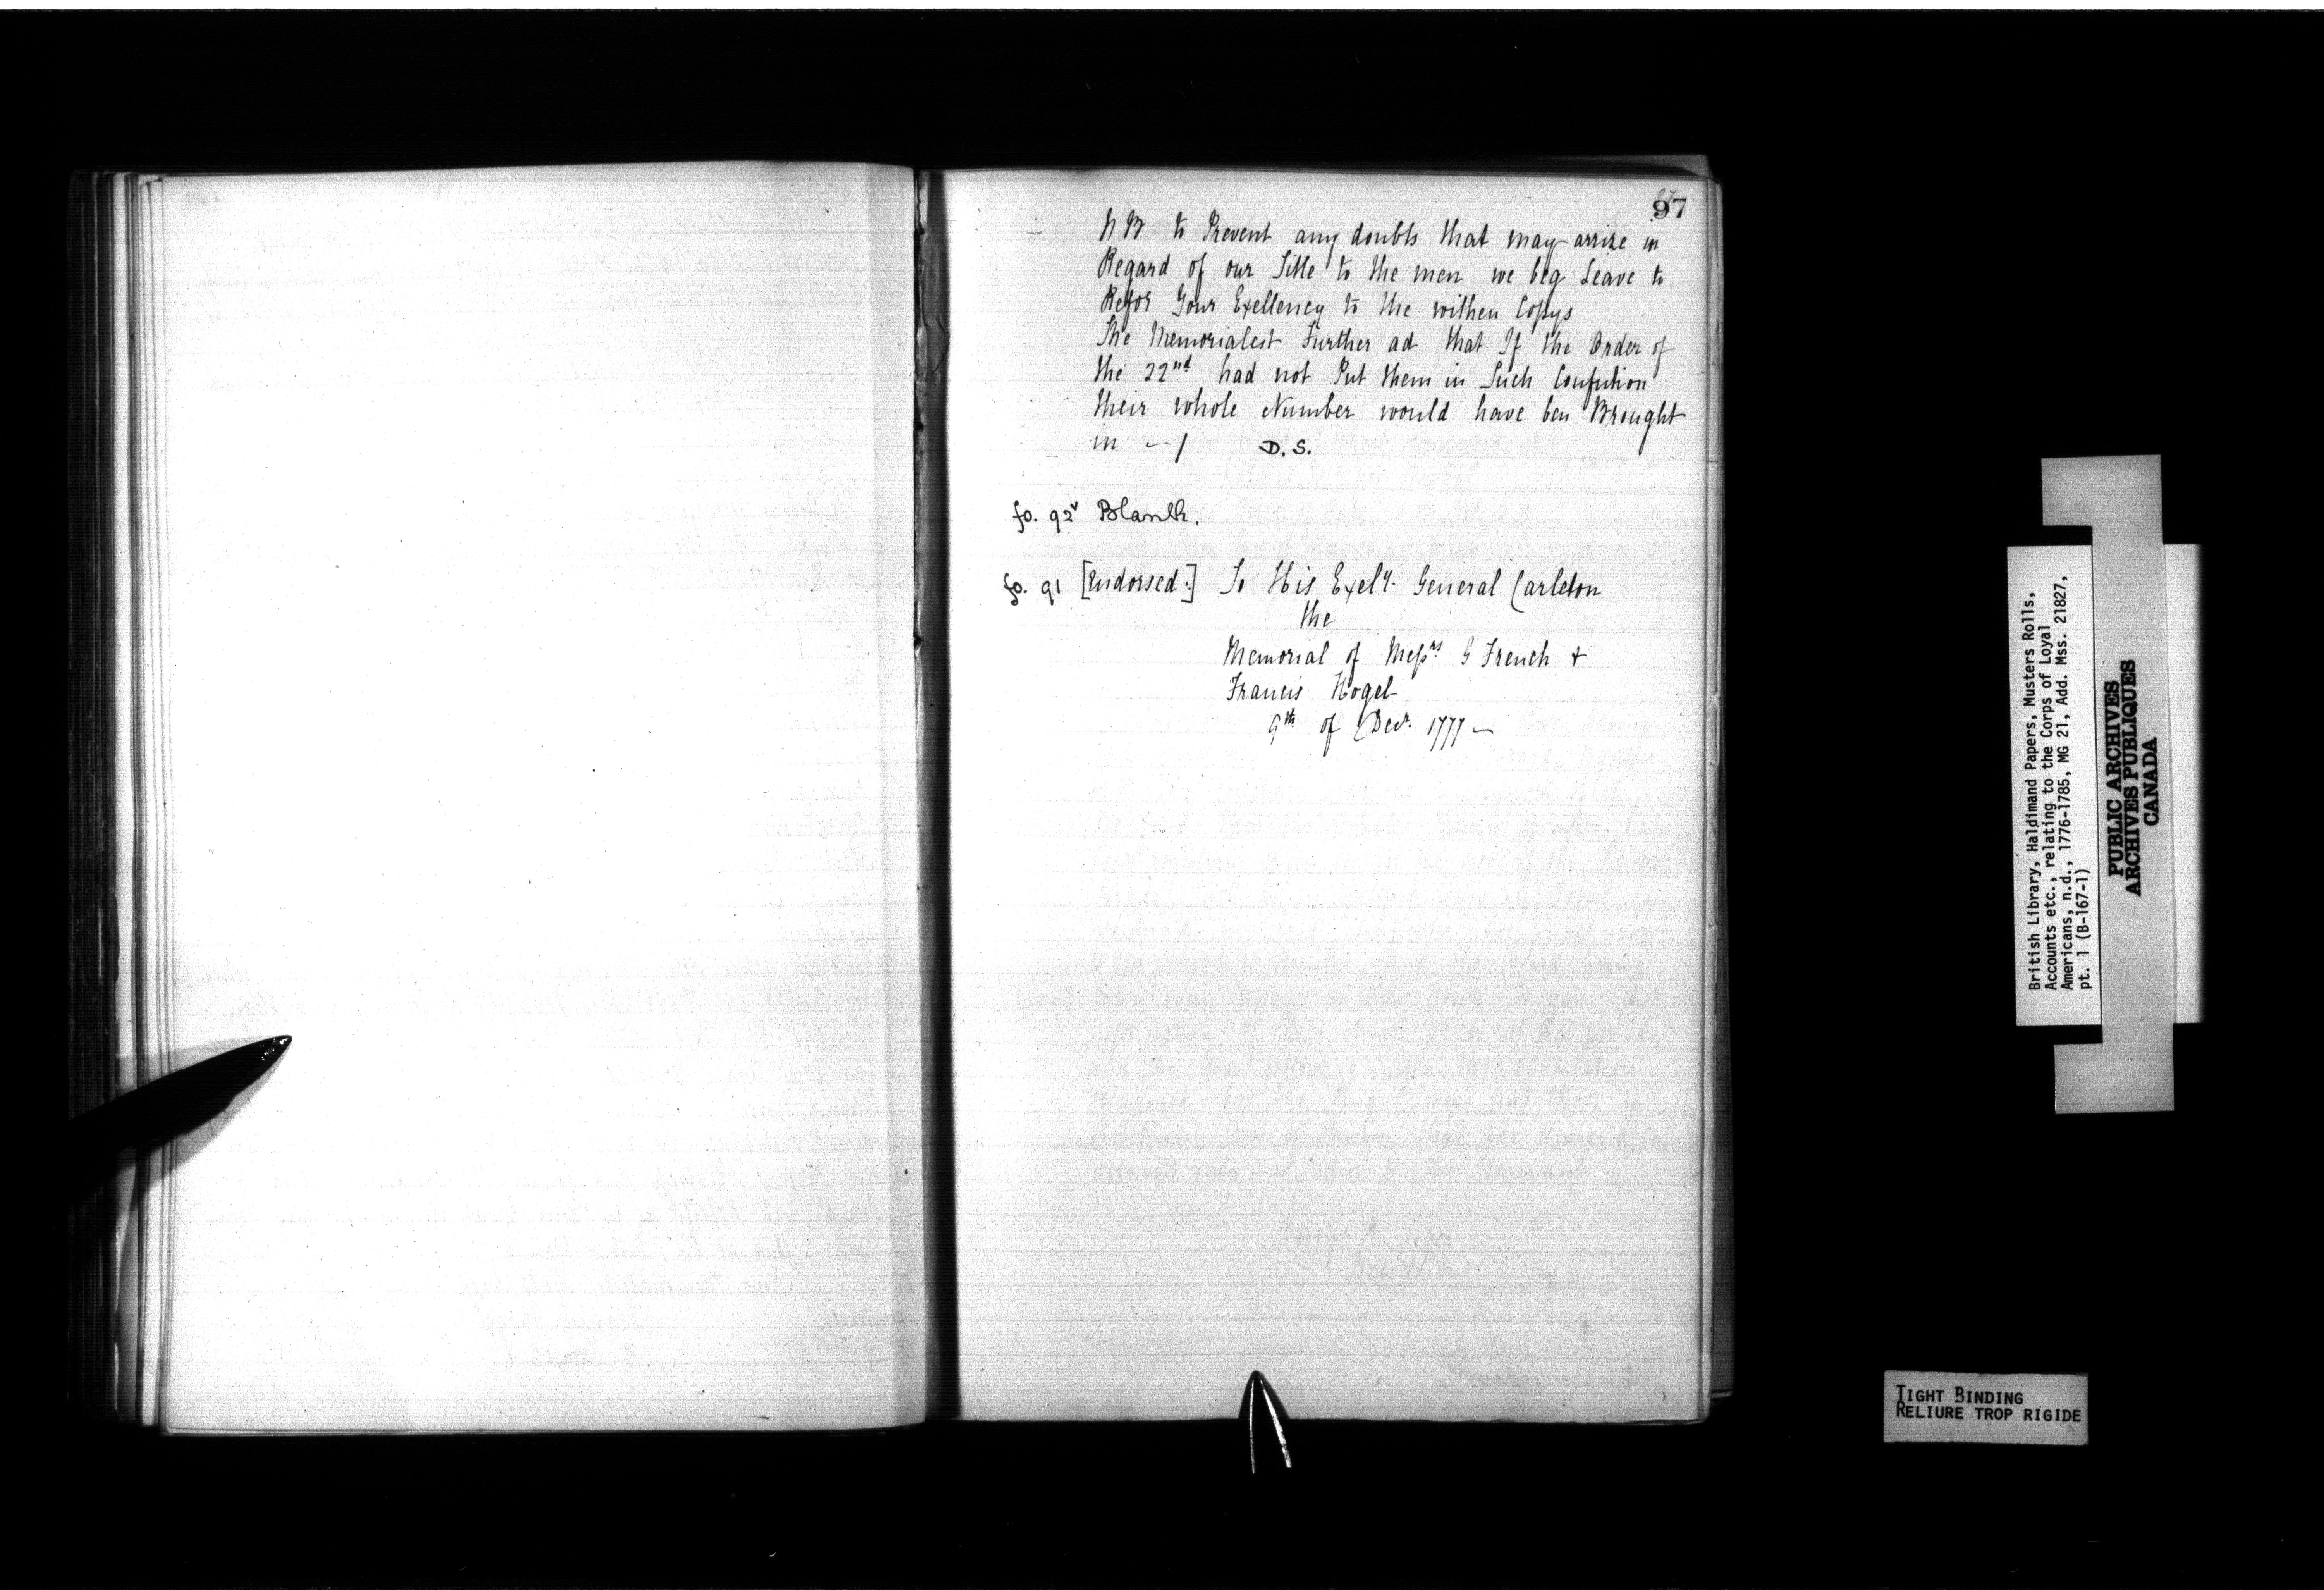 97
N B to Prevent any doubts that may arrize in
Regard of our Title to the men we beg Leave to
Refor Your Exellency to the withen Copys
The Memorialest Further ad that If the Order of
the 22nd had not Put them in Such Confution
their whole Number would have ben Brought
in — / D. S.
fo. 92v Blank.
fo. 91 [Endorsed:] To His Exely. General Carleton
the
Memorial of Messrs G French +
Francis Hogel
9th of Decr. 1777 —
British Library, Haldimand Papers, Musters Rolls,
Accounts etc., relating to the Corps of Loyal
Americans, n.d., 1776-1785, MG 21, Add. Mss. 21827,
pt. 1 (B-167-1)
PUBLIC ARCHIVES
ARCHIVES PUBLIQUES
CANADA
TIGHT BINDING
RELIURE TROP RIGIDE